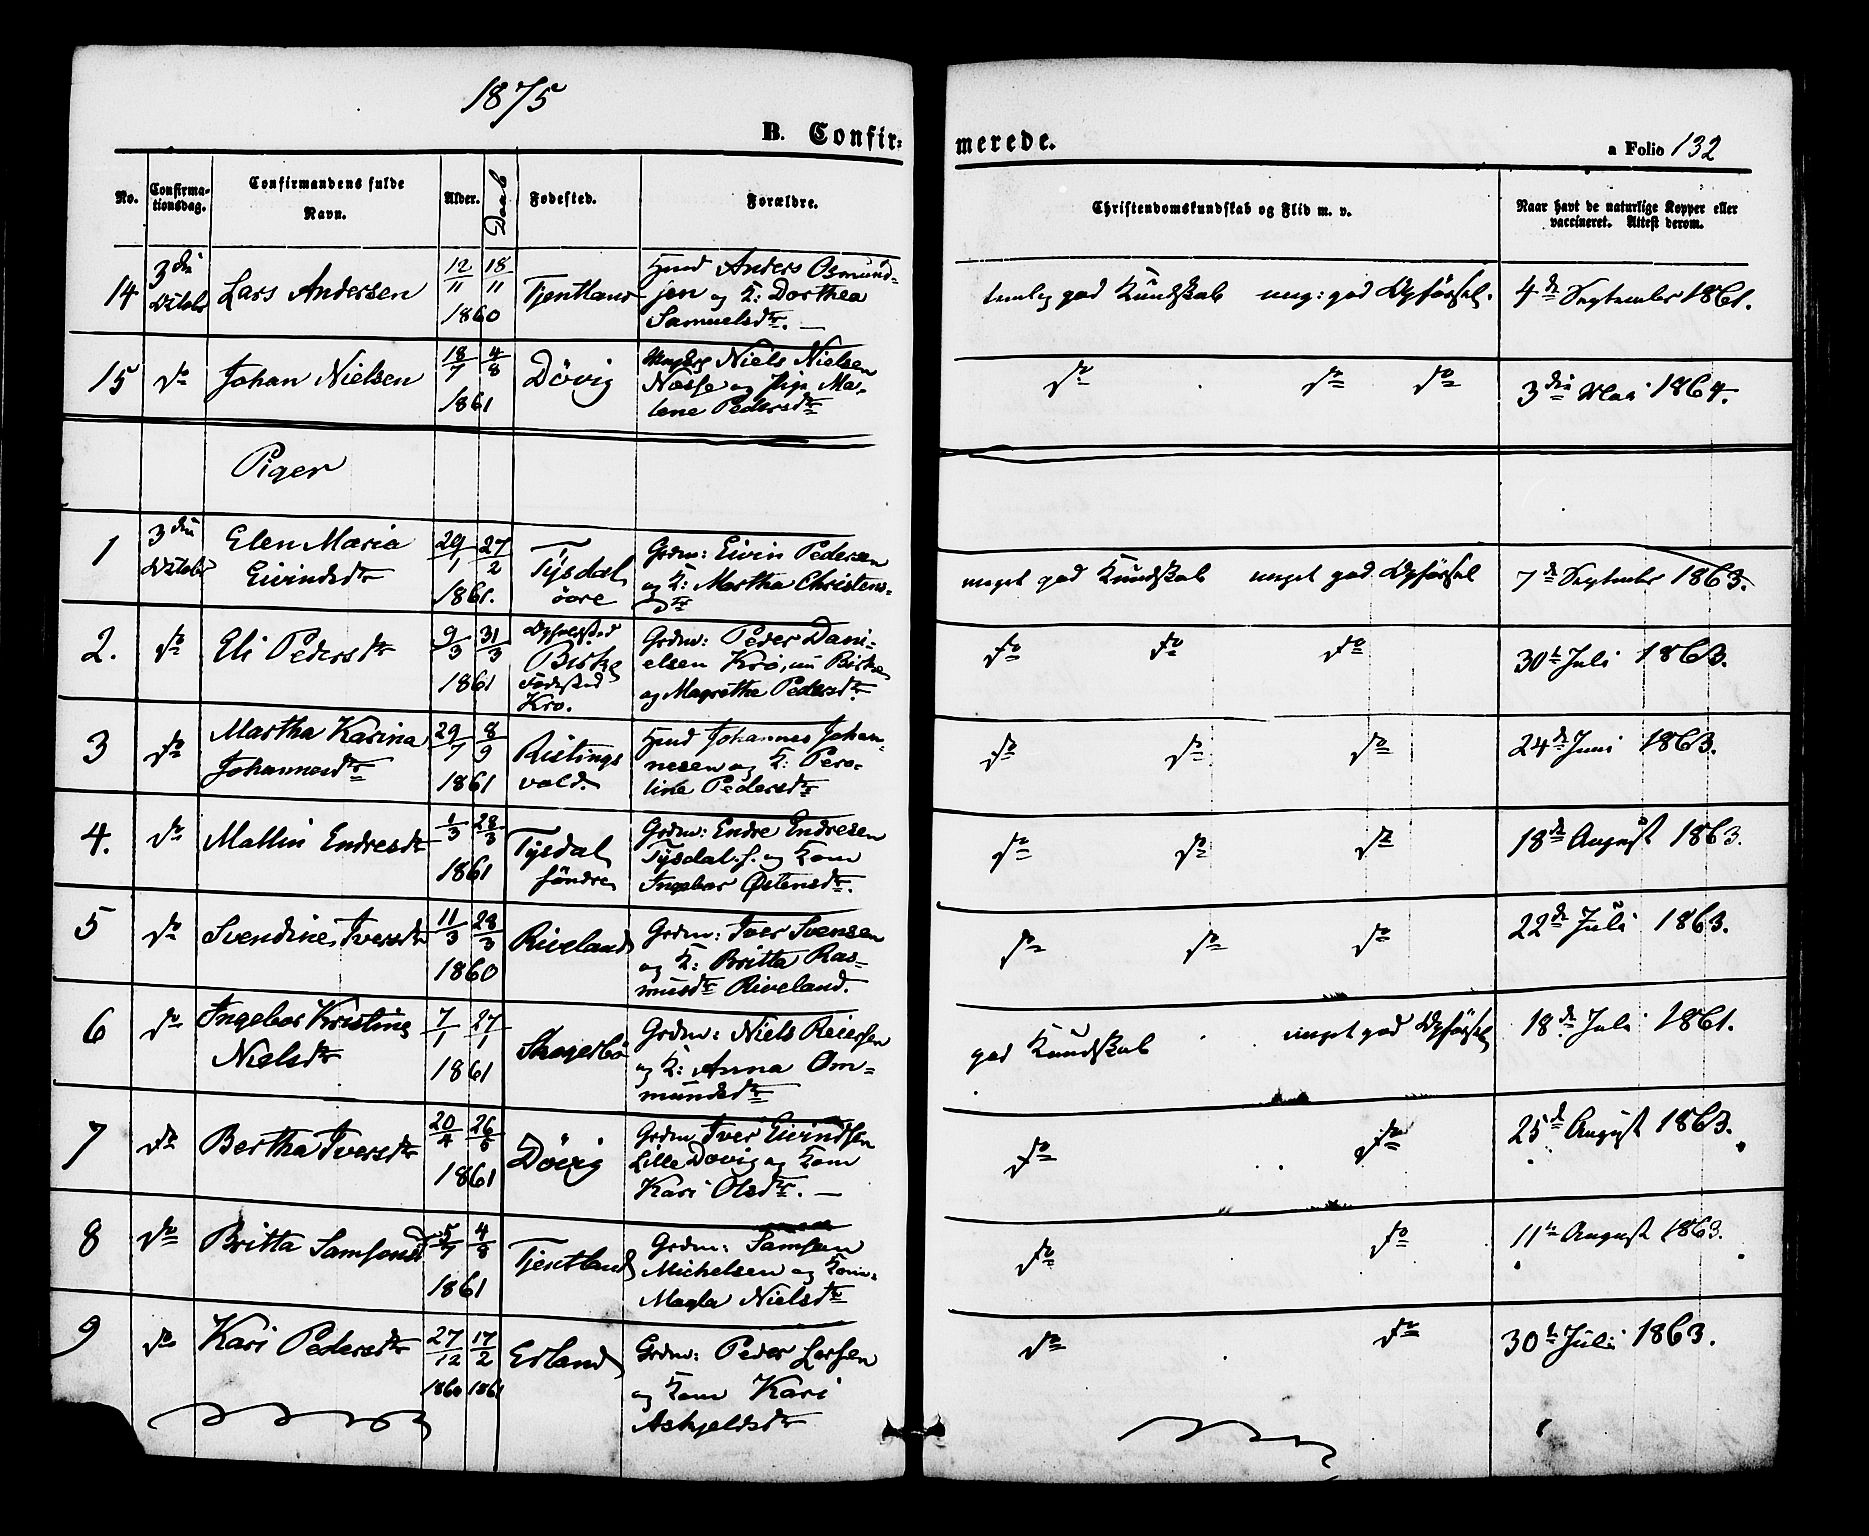 1875
B. Confirmerede.
a Folio 132
No.
Confirmationsdag.
Confirmandens fulde Navn.
Alder.
Daab
Fødested.
Forældre.
Christendomskundskab og Flid m. v.
Naar havt de naturlige Kopper eller vaccineret. Attest derom.
14 3die Lars Andersen 12/11 18/11 1860 Tjentland
Anders Osmund-
sen og K: Dorthea
Samuelsdtr. —
god Kundskab meg: god Opførsel. 4de September 1861.
15 do Johan Nielsen 18/7 4/8 1861 Dövig
Niels Nielsen
Næsse og Ma-
lene Pedersdtr
do do do 3die Mai 1864.
Piger
1 3die Elen Maria
Eivindsdtr
29/1 27/2 1861.
Tysdal
övre
Grdm: Eivin Pedersen
og K: Martha Christens-
dtr
meget god Kundskab meget god Opførsel 7de September 1863.
2. do Eli Pedersdtr 9/3 31/3 1861
Opholdssted
Birke
Fødested
Krø.
Grdm: Peder Dani-
elsen Krø, nu Birke
og Magrethe Pedersdtr
do do do 30te Juli 1863.
3 do Martha Karina
Johannesdtr
29/7 8/9 1861
Ristings
vold.
Hmd Johannes Johan-
nesen og K: Pero-
line Pedersdtr
do do do 24de Juni 1863.
4. do Mallin Endresdtr 1/3 28/3 1861
Tysdal
söndre
Grdm: Endre Endresen
Tysdal s. og Kone
Ingebor Østensdtr.
do do do 18de August 1863.
5 do Svendine Iversdtr 11/3 28/3 1860 Riveland
Grdm: Iver Svensen
og K: Britta Ras-
musdtr Riveland.
do do do 22de Juli 1863.
6 do Ingebor Kristine
Nielsdtr
7/1 27/1 1861
Skogerbö
Grdm: Niels Reiersen
og K: Anna Om-
mundsdtr
god Kundskab meget god Opførsel 18de Juli 1861.
7 do Bertha Iversdtr 20/4 26/5 1861 Dövig
Grdm Iver Eivindsen
Lille Døvig og Kone
Kari Olsdtr. —
do do 25de August 1863.
8 do Britta Samsonsd 5/7 4/8 1861 Tjentland
Grdm: Samson
Michelsen og Kone
Magla Nielsdtr
do do 11te August 1863.
9 do Kari Pedersdtr 27/12 17/2 1860 1861 Erland
Grdm: Peder Larsen
og Kone Kari
Askjeldsdtr
do do 30te Juli 1863.